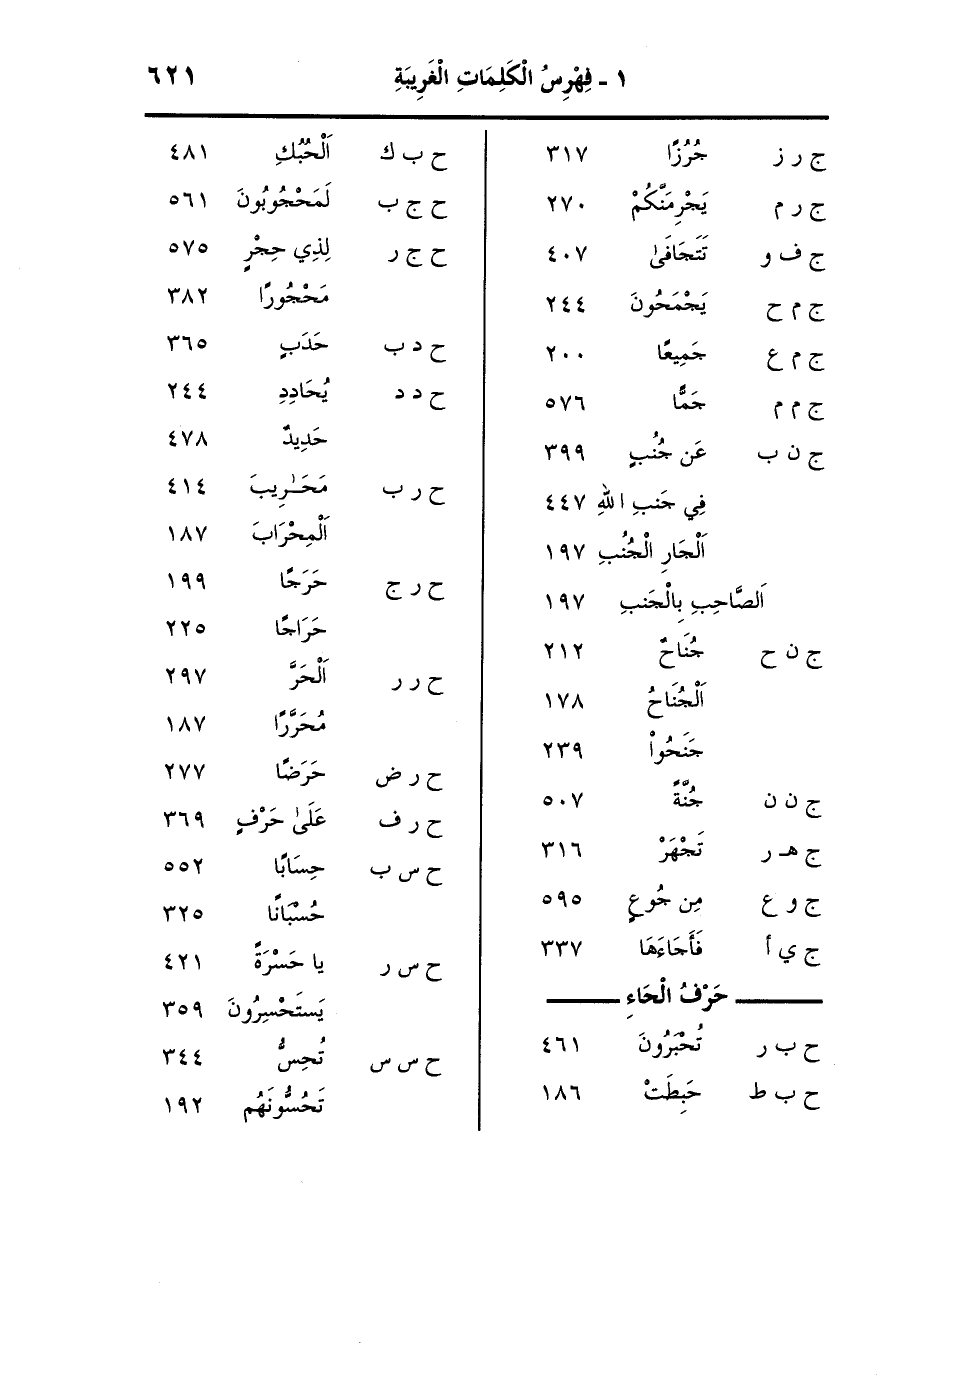 ١ - فِهْرِسُ الْكَلِمَاتِ الْغَرِيبَةِ ٦٢١
ج ر ز جُرُزًا ٣١٧
ج ر م يَجْرِمَنَّكُمْ ٢٧٠
ج ف و تَتَجَافَىٰ ٤٠٧
ج م ح يَجْمَحُونَ ٢٤٤
ج م ع جَمِيعًا ٢٠٠
ج م م جَمًّا ٥٧٦
ج ن ب عَن جُنُبٍ ٣٩٩
فِي جَنبِ اللهِ ٤٤٧
اَلْجَارِ الْجُنُبِ ١٩٧
اَلصَّاحِبِ بِالْجَنبِ ١٩٧
ج ن ح جُنَاحٌ ٢١٢
اَلْجُنَاحُ ١٧٨
جَنَحُواْ ٢٣٩
ج ن ن جُنَّةً ٥٠٧
ج هـ ر تَجْهَرْ ٣١٦
ج و ع مِن جُوعٍ ٥٩٥
ج ي أ فَأَجَاءَهَا ٣٣٧
حَرْفُ الْحَاءِ
ح ب ر تُحْبَرُونَ ٤٦١
ح ب ط حَبِطَتْ ١٨٦
ح ب ك اَلْحُبُكِ ٤٨١
ح ج ب لَمَحْجُوبُونَ ٥٦١
ح ج ر لِذِي حِجْرٍ ٥٧٥
مَحْجُورًا ٣٨٢
ح د ب حَدَبٍ ٣٦٥
ح د د يُحَادِدِ ٢٤٤
حَدِيدٌ ٤٧٨
ح ر ب مَحَـٰرِيبَ ٤١٤
اَلْمِحْرَابَ ١٨٧
ح ر ج حَرَجًا ١٩٩
حَرَاجًا ٢٢٥
ح ر ر اَلْحَرَّ ٢٩٧
مُحَرَّرًا ١٨٧
ح ر ض حَرَضًا ٢٧٧
ح ر ف عَلَىٰ حَرْفٍ ٣٦٩
ح س ب حِسَابًا ٥٥٢
حُسْبَانًا ٣٢٥
ح س ر يا حَسْرَةً ٤٢١
يَستَحْسِرُونَ ٣٥٩
ح س س تُحِسُّ ٣٤٤
تَحُسُّونَهُم ١٩٢